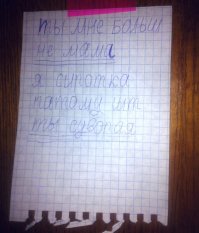 ты мне больш
не мама
я сиротка
патаму шт
ты суворая